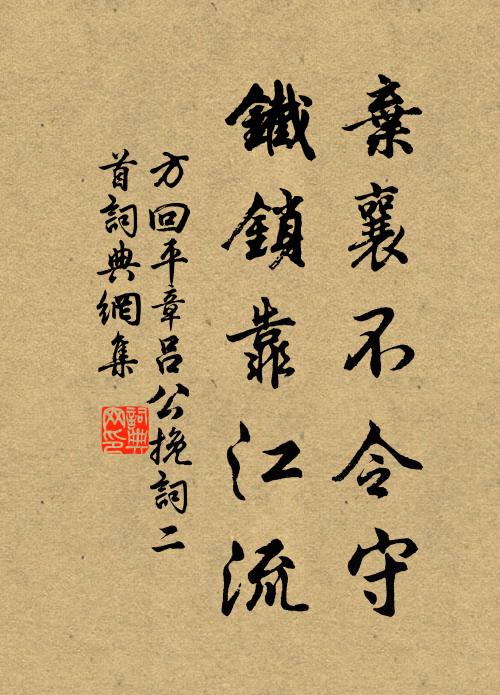 棄襄不令守
鐵鎖靠江流
方回平章呂公挽詞二
首詞典網集
詞典网印